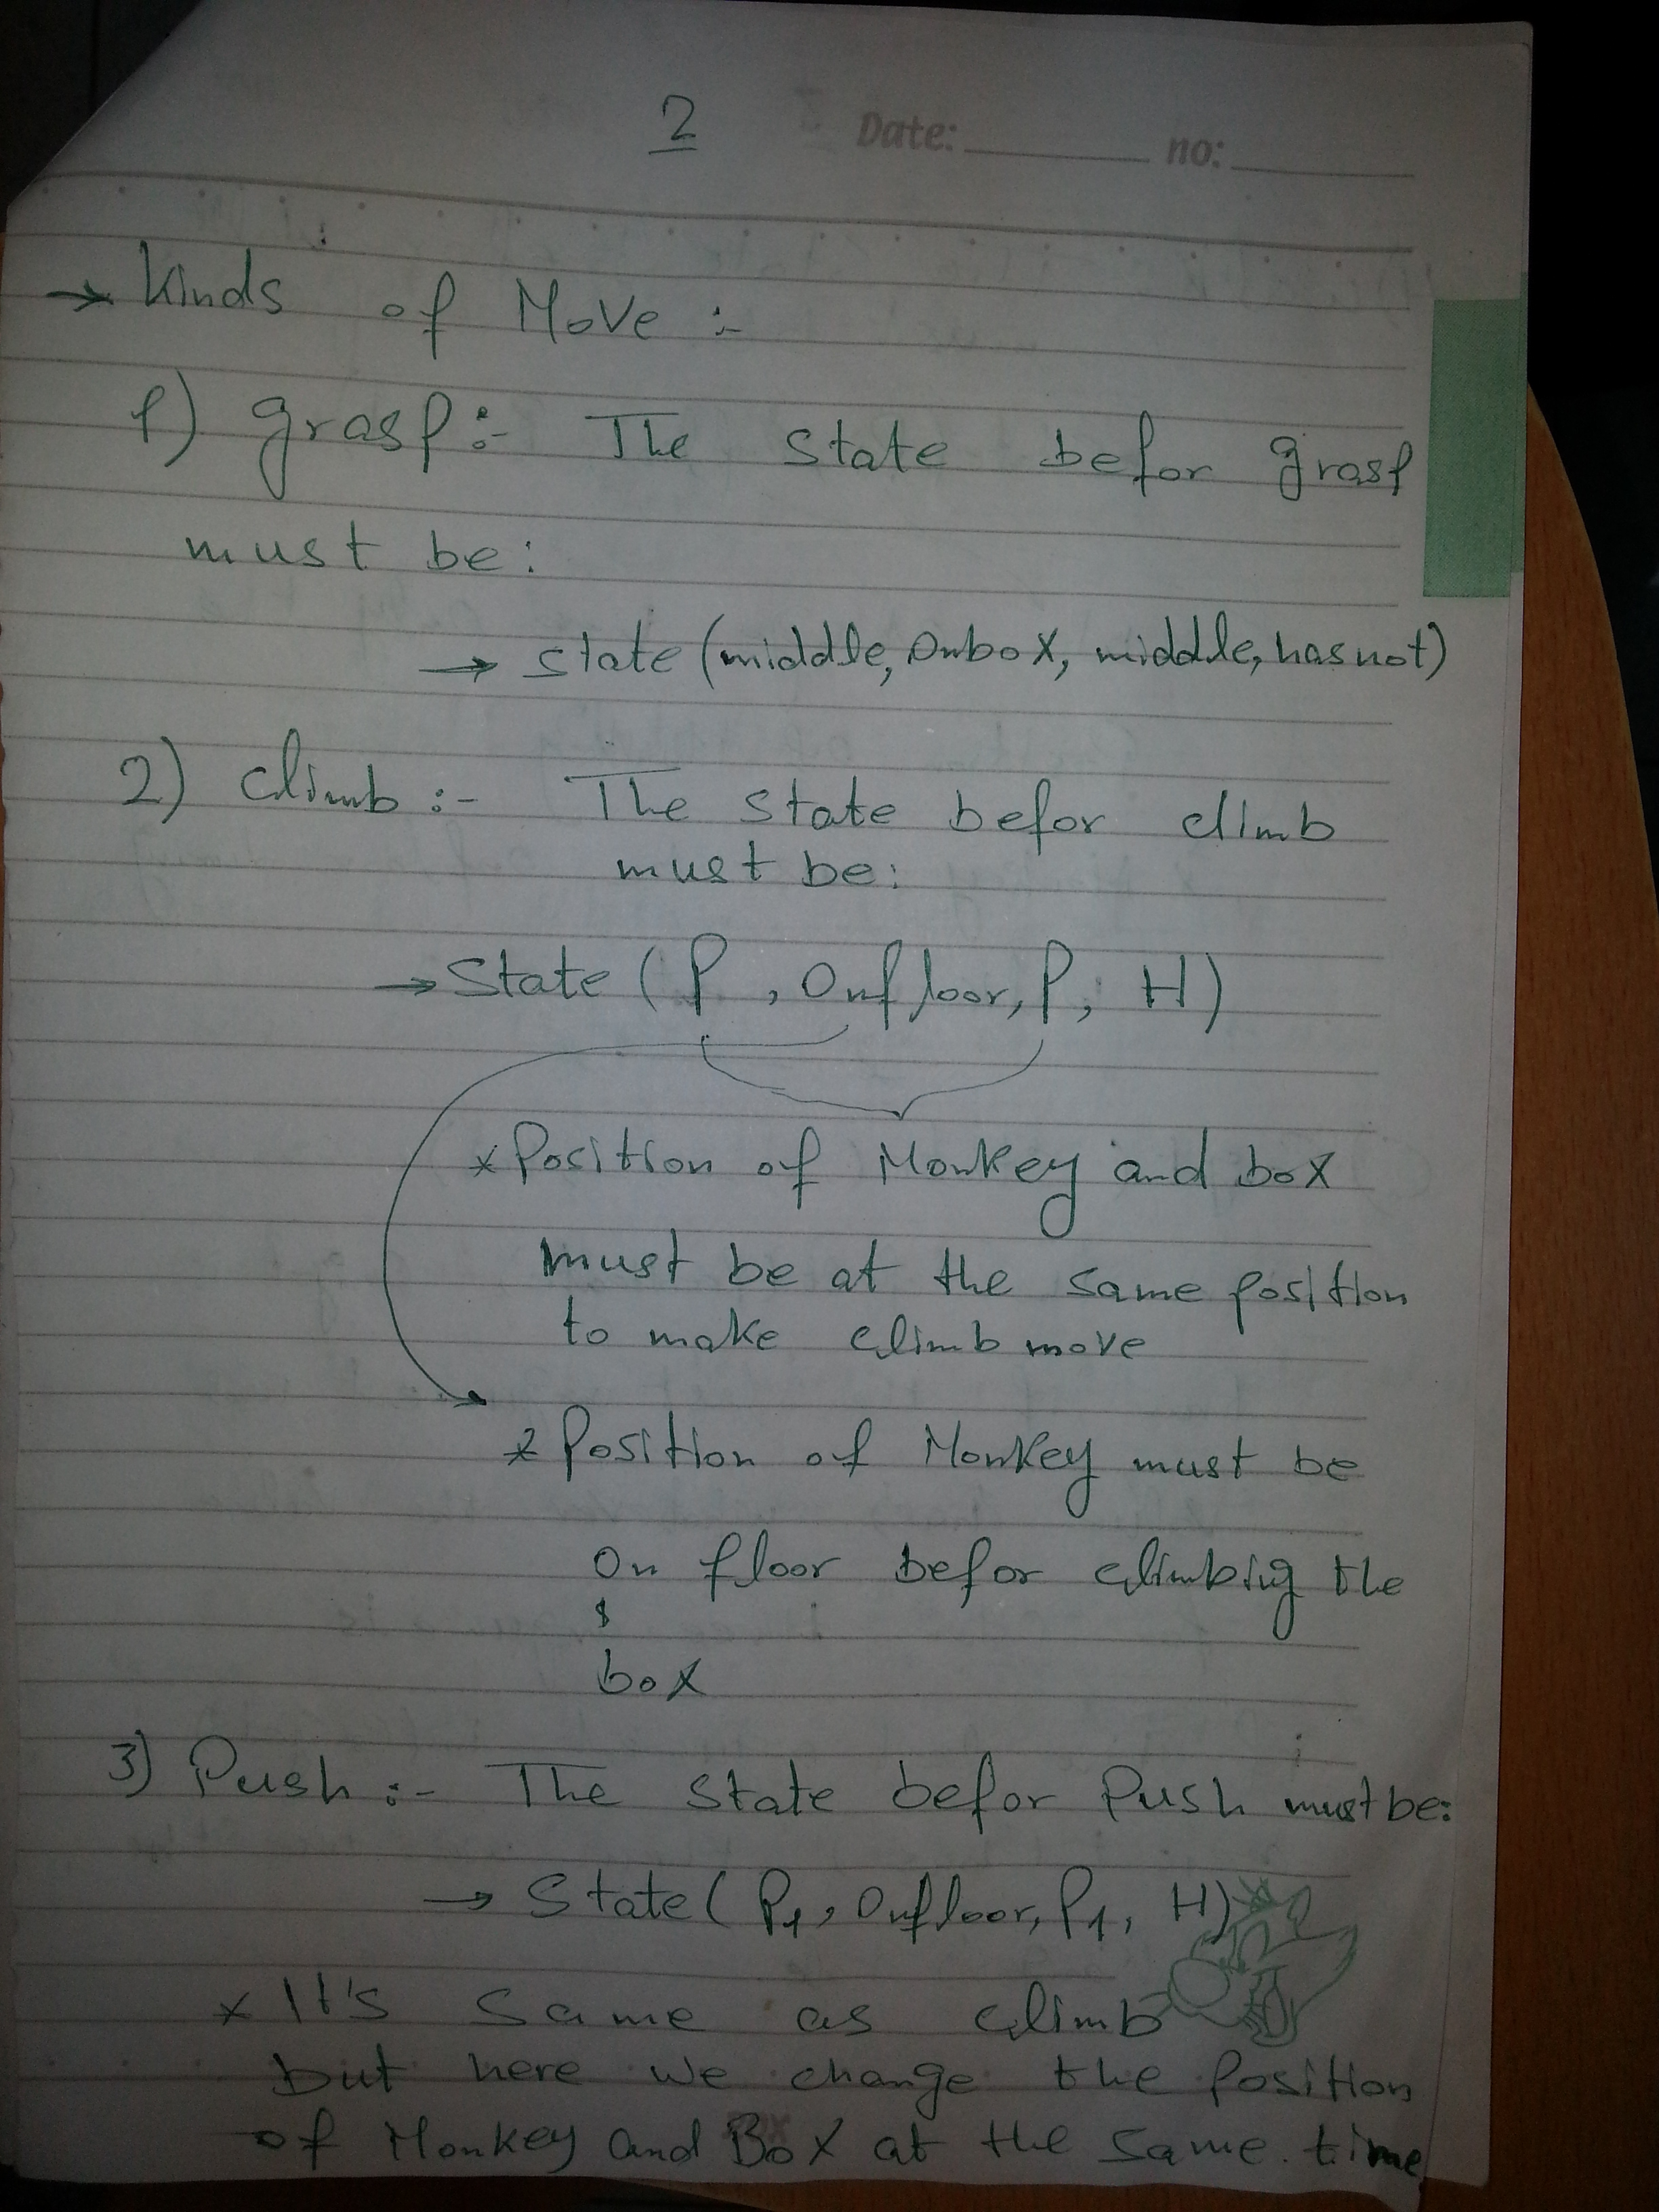 2
Date: no:
→ Kinds of Move :-
1) grasp :- The State befor grasp
must be:
→ state (middle, Onbox, middle, has not)
2) climb :- The state befor climb
must be:
→ State ( P , Onfloor, P, H)
* Position of Monkey and box
must be at the same position
to make climb move
* Position of Monkey must be
On floor befor climbing the
box
3) Push :- The State befor Push must be:
→ State ( P1, Onfloor, P1, H)
* It's same as climb
but here we change the position
of Monkey and Box at the same time